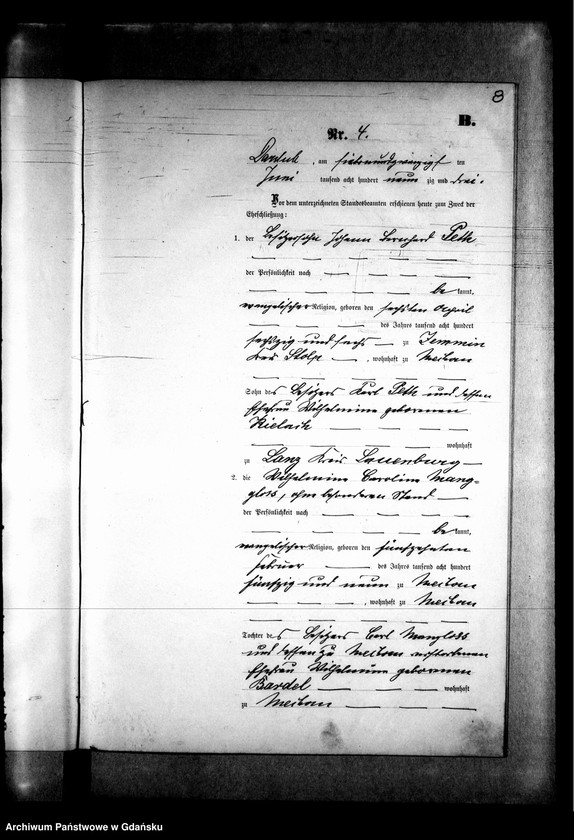 8
B.
Nr. 4.
am siebenundzwanzigsten
Juni tausend acht hundert neunzig und drei.
Vor dem unterzeichneten Standesbeamten erschienen heute zum Zweck der
Eheschließung:
1. der Besitzersohn Johann Bernhard Peth
der Persönlichkeit nach
bekannt,
evangelischer Religion, geboren den sechsten April
des Jahres tausend acht hundert
sechszig und sechs zu Jemmin
Kreis Stolp, wohnhaft zu
Sohn des Besitzers Karl Peth und dessen
Ehefrau Wilhelmine geborenen
wohnhaft
zu Lanz Kreis Lauenburg
2. die Wilhelmine Caroline Mang-
gloss, ohne besonderen Stand
der Persönlichkeit nach
bekannt,
evangelischer Religion, geboren den fünfzehnten
Februar des Jahres tausend acht hundert
fünfzig und neun zu
, wohnhaft zu
Tochter des Besitzers Carl Mangloss
und dessen zu verstorbenen
Ehefrau Wilhelmine geborenen
Bardel wohnhaft
zu
Archiwum Państwowe w Gdańsku